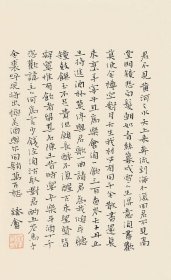 君不見黃河之水天上來奔流到海不復回君不見高
堂明鏡悲白髮朝如青絲暮成雪人生得意須盡歡
莫使金樽空對月天生我材必有用千金散盡還復
來烹羊宰牛且為樂會須一飲三百杯岑夫子丹丘
生將進酒杯莫停與君歌一曲請君為我傾耳聽
鐘鼓饌玉不足貴但願長醉不願醒古來聖賢皆
寂寞惟有飲者留其名陳王昔時宴平樂斗酒十千
恣歡謔主人何為言少錢徑須沽取對君酌五花馬千
金裘呼兒將出換美酒與爾同銷萬古愁